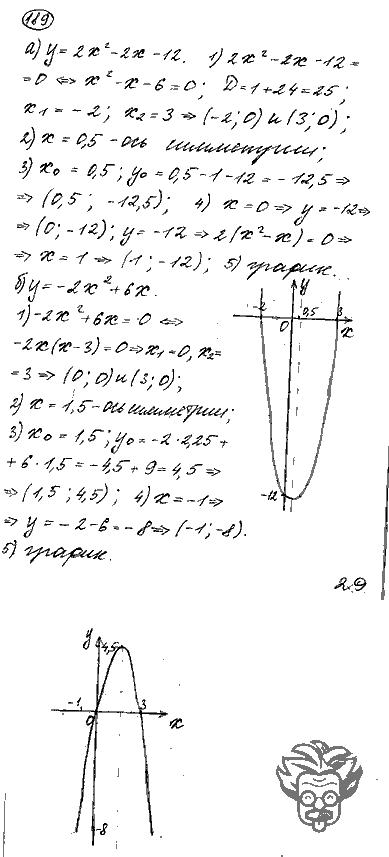 189
а) y = 2x² - 2x - 12. 1) 2x² - 2x - 12 =
= 0 ⇔ x² - x - 6 = 0; D = 1 + 24 = 25;
x₁ = -2; x₂ = 3 ⇒ (-2; 0) и (3; 0);
2) x = 0,5 - ось симметрии;
3) x₀ = 0,5; y₀ = 0,5 - 1 - 12 = -12,5 ⇒
⇒ (0,5; -12,5); 4) x = 0 ⇒ y = -12 ⇒
⇒ (0; -12); y = -12 ⇒ 2(x² - x) = 0 ⇒
⇒ x = 1 ⇒ (1; -12); 5) график.
б) y = -2x² + 6x.
1) -2x² + 6x = 0 ⇔
-2x(x - 3) = 0 ⇒ x₁ = 0, x₂ =
= 3 ⇒ (0; 0) и (3; 0);
2) x = 1,5 - ось симметрии;
3) x₀ = 1,5; y₀ = -2 · 2,25 +
+ 6 · 1,5 = -4,5 + 9 = 4,5 ⇒
⇒ (1,5; 4,5); 4) x = -1 ⇒
⇒ y = -2 - 6 = -8 ⇒ (-1; -8).
5) график.
y
-2 0 0,5 3 x
-12
29
y
4,5
-1 0 3 x
-8